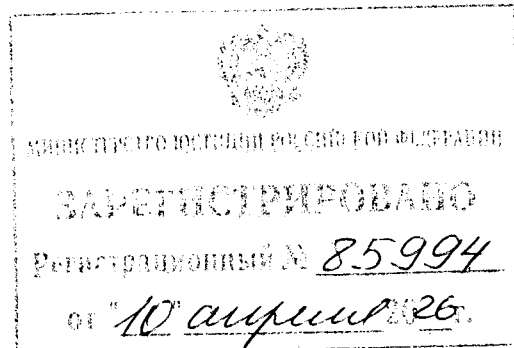 МИНИСТЕРСТВО ЮСТИЦИИ РОССИЙСКОЙ ФЕДЕРАЦИИ
ЗАРЕГИСТРИРОВАНО
Регистрационный № 85994
от "10" апреля 2026 г.